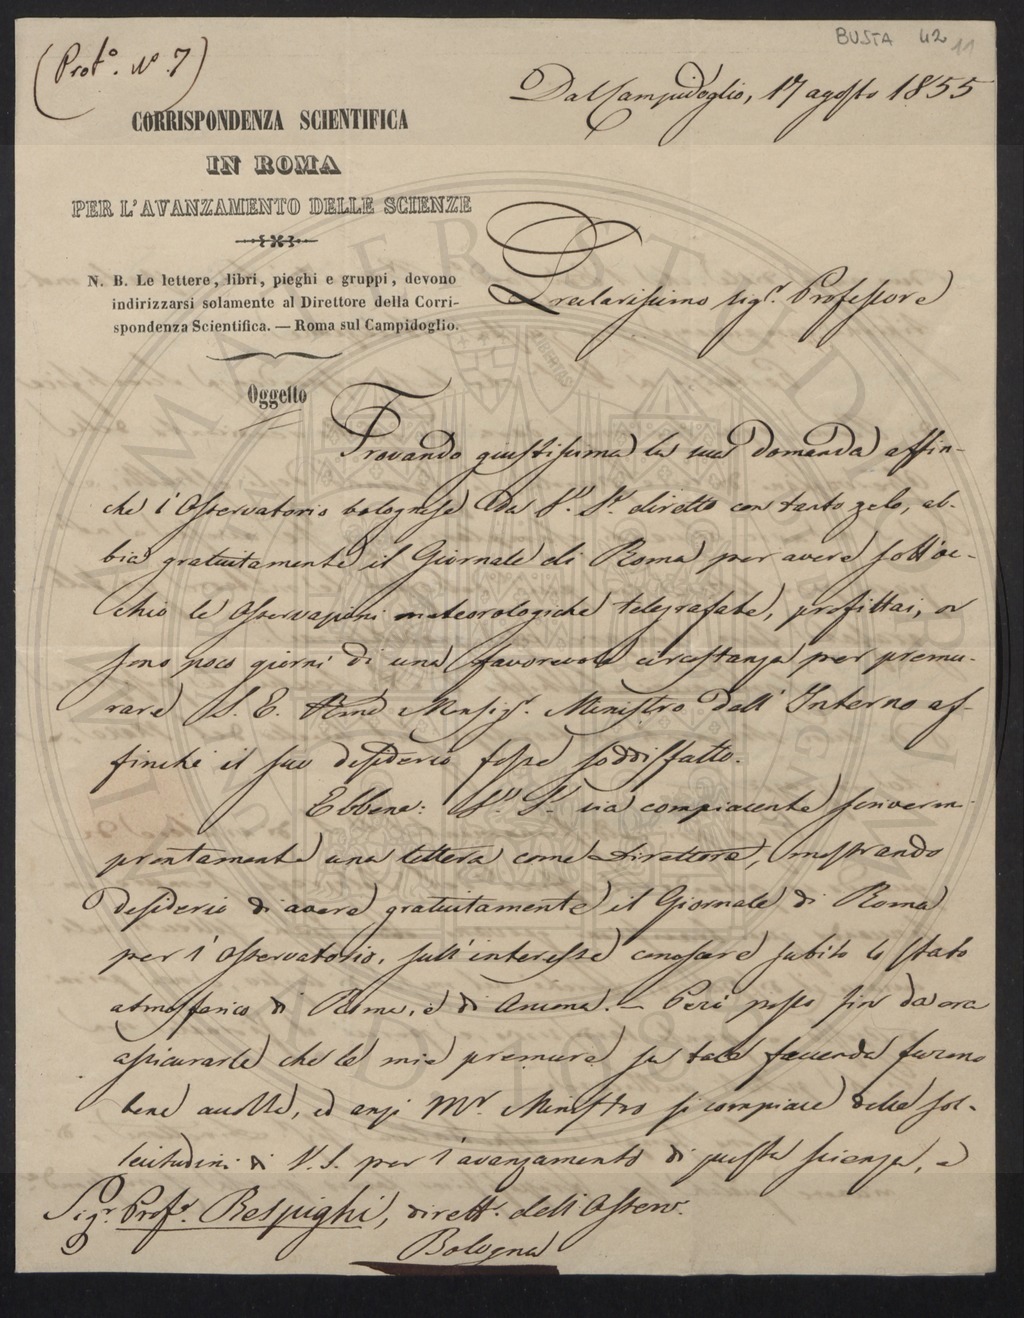 BUSTA 42 11
(Prot.º Nº. 7)
Dal Campidoglio, 17 agosto 1855
CORRISPONDENZA SCIENTIFICA
IN ROMA
PER L'AVANZAMENTO DELLE SCIENZE
N. B. Le lettere, libri, pieghi e gruppi, devono
indirizzarsi solamente al Direttore della Corri-
spondenza Scientifica. — Roma sul Campidoglio.
Preclarissimo sigr. Professore
Oggetto
Trovando giustissima la sua domanda affin-
chè l'Osservatorio bolognese da diretto con tanto zelo, ab-
bia gratuitamente il Giornale di Roma per avere sott'oc-
chio le Osservazioni meteorologiche telegrafate, profittai, or
sono poco giorni di una favorevole circostanza per premu-
rare S. E. Rmd Monsigr. Ministro dell'Interno af-
finchè il suo desiderio fosse soddisfatto.
Ebbene: sia compiacente scrivermi
prontamente una lettera come Direttore, mostrando
desiderio di avere gratuitamente il Giornale di Roma
per l'Osservatorio, sull'interesse conoscere subito lo stato
atmosferico di Roma, e di Ancona. — Però posso fin da ora
assicurarle che le mie premure su tale faccenda furono
bene accolte, ed anzi Mr. Ministro si compiace delle sol-
lecitudini di V. S. per l'avanzamento di questa scienza, e
Sigr. Profr. Respighi, dirett. dell'Osserv.
Bologna